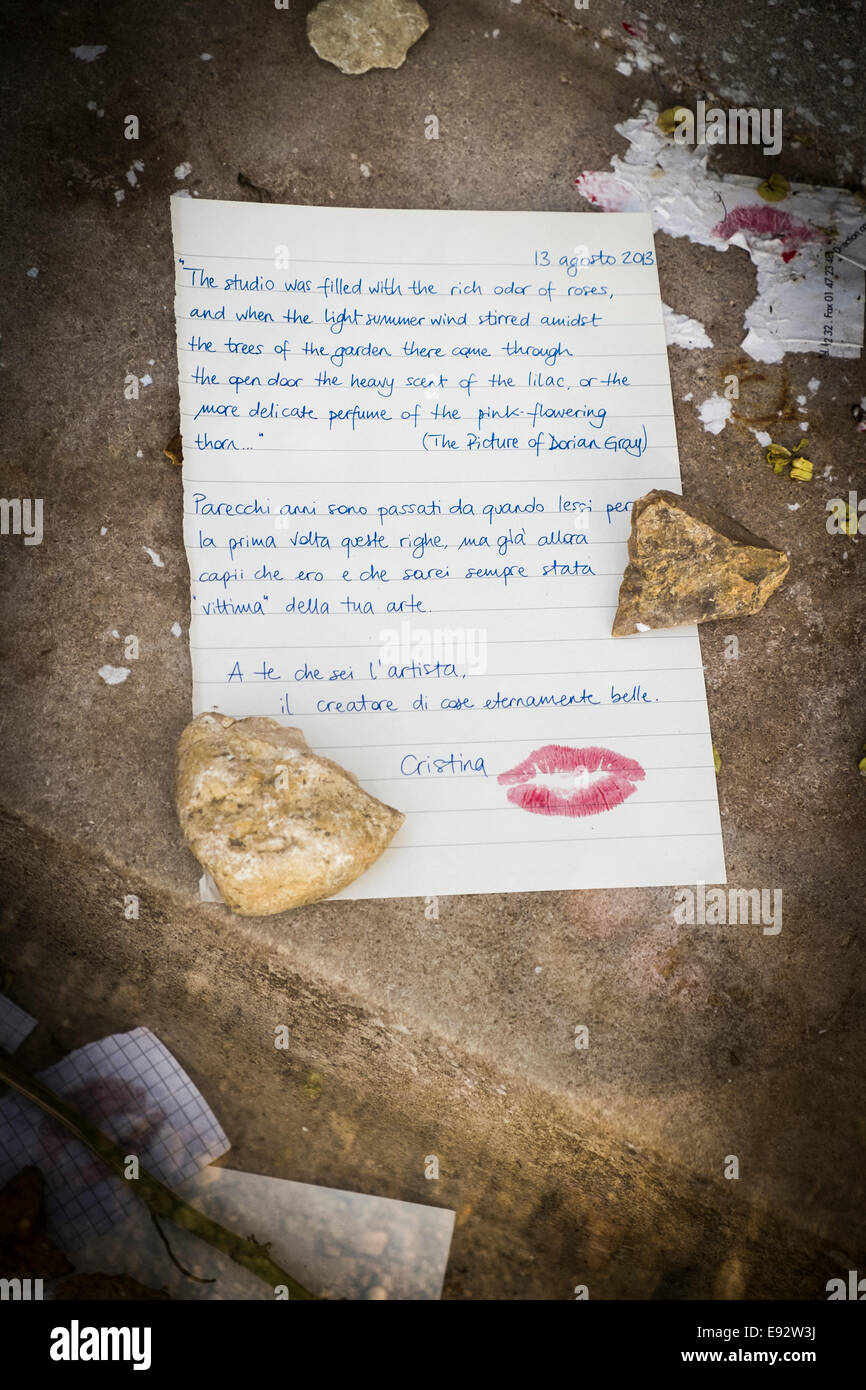 13 agosto 2013
"The studio was filled with the rich odor of roses,
and when the light summer wind stirred amidst
the trees of the garden there came through
the open door the heavy scent of the lilac, or the
more delicate perfume of the pink-flowering
thorn..." (The Picture of Dorian Gray)
Parecchi anni sono passati da quando lessi per
la prima volta queste righe, ma già allora
capii che ero e che sarei sempre stata
"vittima" della tua arte.
A te che sei l'artista,
il creatore di cose eternamente belle.
Cristina
32 . Fax 01 47 23 48
alamy
Image ID: E92W3J
www.alamy.com